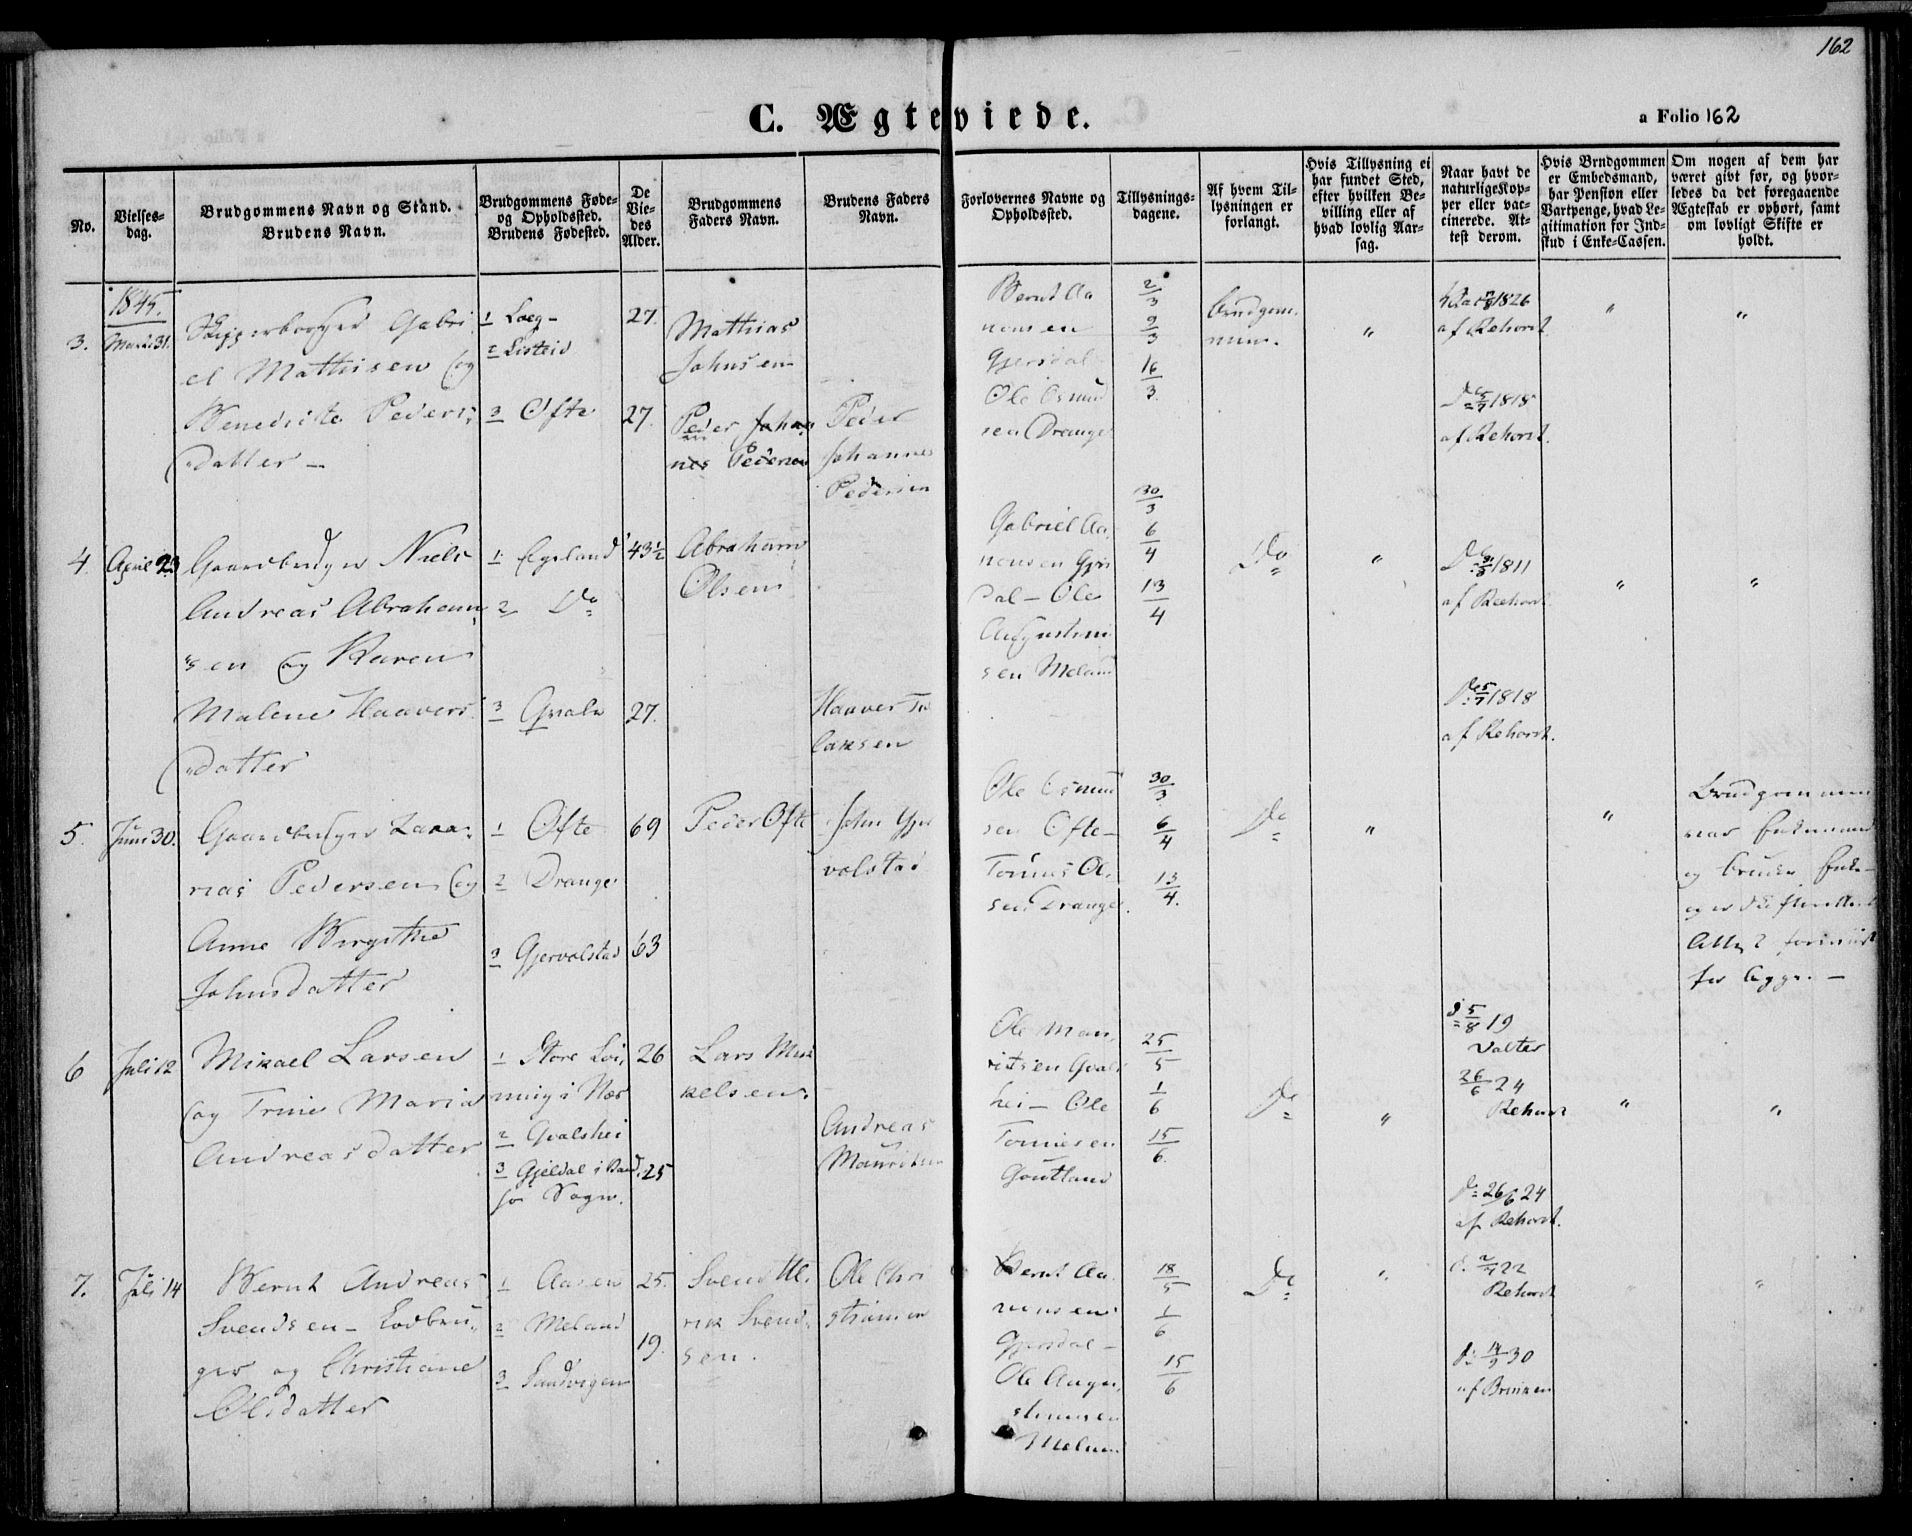 162
C. Ægteviede.
a Folio 162
No.
Vielses-
dag.
Brudgommens Navn og Stand.
Brudens Navn.
Brudgommens Føde-
og Opholdssted.
Brudens Fødested.
De
Vie-
des
Alder.
Brudgommens
Faders Navn.
Brudens Faders
Navn.
Forlovernes Navne og
Opholdssted.
Tillysnings-
dagene.
Af hvem Til-
lysningen er
forlangt.
Hvis Tillysning ei
har fundet Sted,
efter hvilken Be-
villing eller af
hvad lovlig Aar-
sag.
Naar havt de
naturlige Kop-
per eller vac-
cinerede. At-
test derom.
Hvis Brudgommen
er Embedsmand,
har Pension eller
Vartpenge, hvad Le-
gitimation for Ind-
skud i Enke-Cassen.
Om nogen af dem har
været givt før, og hvor-
ledes da det foregaaende
Ægteskab er ophørt, samt
om lovligt Skifte er
holdt.
1845.
3.
31.
Gabri
el Mathisen og
Benedicte Peders
datter –
1 Loeg-
2 Listeid
3 Ofte
27.
27.
Mathias
Johnsen
Peder Johan
nes Pedersen
Peder
Johannes
Pedersen
Bernt Aa
nensen
Gjersdal
Ole Osmund
sen Drange
2/3
9/3
16/3
Brudgom-
men.
"
1826
af Rehorst
1818
af Rehorst.
"
"
4
April 23
Gaardbruger Niels
Andreas Abraham
sen og Karen
Malene Haavers
datter
1 Egeland
2 Do
3 Qvale
43½
27.
Abraham
Olsen
Haaver To
laksen
Gabriel Aa
nensen Gjers
dal – Ole
Augustin
sen Meland
30/3
6/4
13/4
Do
"
1811
af Rehorst
Do 5/7 1818
af Rehorst.
"
"
5.
Juni 30.
Gaardbruger Zaka-
rias Pedersen og
Anne Birgithe
Johnsdatter
1 Ofte
2 Drange
3 Gjervolstad
69
63
Peder Ofte
John Gjer
volstad
Ole Osmund
sen Ofte –
Tønnes Ol
sen Drange.
30/3
6/4
13/4.
Do
"
"
Brudgommen
var Enkemand
og bruden Enke
6
Juli 12
Mikael Larsen
og Trine Maria
Andreasdatter
1 Store
2 Qvalshei
3 Gjeldal i
Sogn.
26
25
Lars Mik
kelsen.
Andreas
Mauritsen
Ole Mau
ritsen Qvals
hei – Ole
Tønnesen
25/5
1/6
15/6.
Do
"
5/8 19
26/6 24
Rehorst
Do 26/6 24
af Rehorst.
"
"
7.
Juli 14
Bernt Andreas
Svendsen – Lodbru
ger og Christiane
Olsdatter
1 Aasen
2 Meland
3 Sandvigen
25.
19.
Svend Ul
rik Svend
sen.
Ole Chri
stiansen
Bernt Aa
nensen
Gjersdal –
Ole Augu
stinusen
18/5
1/6
15/6
Do
"
22
Rehorst
30
"
"